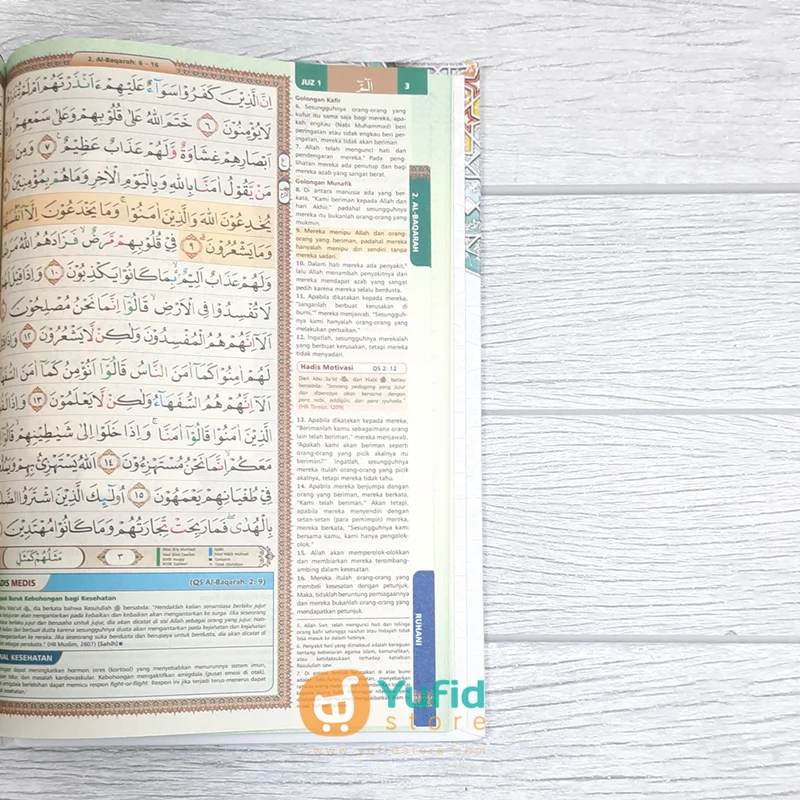 2. Al-Baqarah: 6 - 16
اِنَّ الَّذِيْنَ كَفَرُوْا سَوَاۤءٌ عَلَيْهِمْ ءَاَنْذَرْتَهُمْ اَمْ لَمْ
لَا يُؤْمِنُوْنَ ٦ خَتَمَ اللّٰهُ عَلٰى قُلُوْبِهِمْ وَعَلٰى سَمْعِهِمْ
اَبْصَارِهِمْ غِشَاوَةٌ وَّلَهُمْ عَذَابٌ عَظِيْمٌ ٧ وَمِنَ
مَنْ يَّقُوْلُ اٰمَنَّا بِاللّٰهِ وَبِالْيَوْمِ الْاٰخِرِ وَمَا هُمْ بِمُؤْمِنِيْنَ
يُخٰدِعُوْنَ اللّٰهَ وَالَّذِيْنَ اٰمَنُوْا وَمَا يَخْدَعُوْنَ اِلَّآ اَنْفُسَهُمْ
وَمَا يَشْعُرُوْنَ ٩ فِيْ قُلُوْبِهِمْ مَّرَضٌ فَزَادَهُمُ اللّٰهُ مَرَضًا
وَلَهُمْ عَذَابٌ اَلِيْمٌ بِمَا كَانُوْا يَكْذِبُوْنَ ١٠ وَاِذَا قِيْلَ لَهُمْ
لَا تُفْسِدُوْا فِى الْاَرْضِ قَالُوْٓا اِنَّمَا نَحْنُ مُصْلِحُوْنَ
اَلَآ اِنَّهُمْ هُمُ الْمُفْسِدُوْنَ وَلٰكِنْ لَّا يَشْعُرُوْنَ ١٢ وَاِذَا
لَهُمْ اٰمِنُوْا كَمَآ اٰمَنَ النَّاسُ قَالُوْٓا اَنُؤْمِنُ كَمَآ اٰمَنَ السُّفَهَاۤءُ
اَلَآ اِنَّهُمْ هُمُ السُّفَهَاۤءُ وَلٰكِنْ لَّا يَعْلَمُوْنَ ١٣ وَاِذَا لَقُوا
الَّذِيْنَ اٰمَنُوْا قَالُوْٓا اٰمَنَّا وَاِذَا خَلَوْا اِلٰى شَيٰطِيْنِهِمْ قَالُوْٓا
مَعَكُمْ اِنَّمَا نَحْنُ مُسْتَهْزِءُوْنَ ١٤ اَللّٰهُ يَسْتَهْزِئُ بِهِمْ وَيَمُدُّهُمْ
فِيْ طُغْيَانِهِمْ يَعْمَهُوْنَ ١٥ اُولٰۤىِٕكَ الَّذِيْنَ اشْتَرَوُا الضَّلٰلَةَ
بِالْهُدٰى فَمَا رَبِحَتْ تِّجَارَتُهُمْ وَمَا كَانُوْا مُهْتَدِيْنَ
مَثَلُهُمْ كَمَثَلِ
٣
DIS MEDIS
(QS Al-Baqarah, 2: 9)
pak Buruk Kebohongan bagi Kesehatan
Mas'ud, dia berkata bahwa Rasulullah ﷺ bersabda: "Hendaklah kalian senantiasa berlaju jujur
kejujuran akan mengantarkan pada kebaikan dan kebaikan akan mengantarkan ke surga. Jika seseorang
berlaku jujur dan berusaha untuk jujur, dia akan dicatat di sisi Allah sebagai orang yang jujur. Hati-
dari berbuat dusta karena sesungguhnya dusta akan mengantarkan kepada kejahatan dan kejahatan
mengantarkan ke neraka. Jika seseorang suka berdusta dan berupaya untuk berdusta, dia akan dicatat di
sebagai pendusta." (HR Muslim, 2607) (Sahih)
NAL KESEHATAN
dapat meningkatkan hormon stres (kortisol) yang menyebabkan menurunnya sistem imun,
tidur, dan masalah kardiovaskular. Kebohongan mengaktifkan amigdala (pusat emosi di otak).
amigdala berlebihan dapat memicu respon fight-or-flight. Respon ini jika terjadi terus-menerus dapat
kesehatan.
JUZ 1
3
Golongan Kafir
6. Sesungguhnya orang-orang yang
kufur itu sama saja bagi mereka, apa-
kah engkau (Nabi Muhammad) beri
peringatan atau tidak engkau beri per-
ingatan, mereka tidak akan beriman.
7. Allah telah mengunci hati dan
pendengaran mereka. Pada peng-
lihatan mereka ada penutup dan bagi
mereka azab yang sangat berat.
Golongan Munafik
8. Di antara manusia ada yang ber-
kata, "Kami beriman kepada Allah dan
hari Akhir," padahal sesungguhnya
mereka itu bukanlah orang-orang yang
mukmin.
9. Mereka menipu Allah dan orang-
orang yang beriman, padahal mereka
hanyalah menipu diri sendiri tanpa
mereka sadari.
10. Dalam hati mereka ada penyakit,
lalu Allah menambah penyakitnya dan
mereka mendapat azab yang sangat
pedih karena mereka selalu berdusta.
11. Apabila dikatakan kepada mereka,
"Janganlah berbuat kerusakan di
bumi," mereka menjawab, "Sesungguh-
nya kami hanyalah orang-orang yang
melakukan perbaikan."
12. Ingatlah, sesungguhnya merekalah
yang berbuat kerusakan, tetapi mereka
tidak menyadari.
Hadis Motivasi QS 2: 12
Dari Abu Sa'id, dari Nabi ﷺ, beliau
bersabda: "Seorang pedagang yang jujur
dan dipercaya akan bersama dengan
para nabi, shiddiqin, dan para syuhada."
(HR Tirmizi, 1209)
13. Apabila dikatakan kepada mereka,
"Berimanlah kamu sebagaimana orang
lain telah beriman," mereka menjawab,
"Apakah kami akan beriman seperti
orang-orang yang picik akalnya itu
beriman?" Ingatlah, sesungguhnya
mereka itulah orang-orang yang picik
akalnya, tetapi mereka tidak tahu.
14. Apabila mereka berjumpa dengan
orang yang beriman, mereka berkata,
"Kami telah beriman." Akan tetapi,
apabila mereka menyendiri dengan
setan-setan (para pemimpin) mereka,
mereka berkata, "Sesungguhnya kami
bersama kamu, kami hanya pengolok-
olok."
15. Allah akan memperolok-olokkan
dan membiarkan mereka terombang-
ambing dalam kesesatan.
16. Mereka itulah orang-orang yang
membeli kesesatan dengan petunjuk.
Maka, tidaklah beruntung perniagaannya
dan mereka bukanlah orang-orang yang
mendapatkan petunjuk.
5. Allah Swt. telah mengunci hati dan telinga
orang kafir sehingga nasihat atau hidayah tidak
bisa masuk ke dalam hatinya.
6. Penyakit hati yang dimaksud adalah keraguan
tentang kebenaran agama Islam, kemunafikan,
atau ketidaksukaan terhadap kenabian
Rasulullah saw.
2. AL-BAQARAH
RUHANI
Yufid
store
www.yufidstore.com